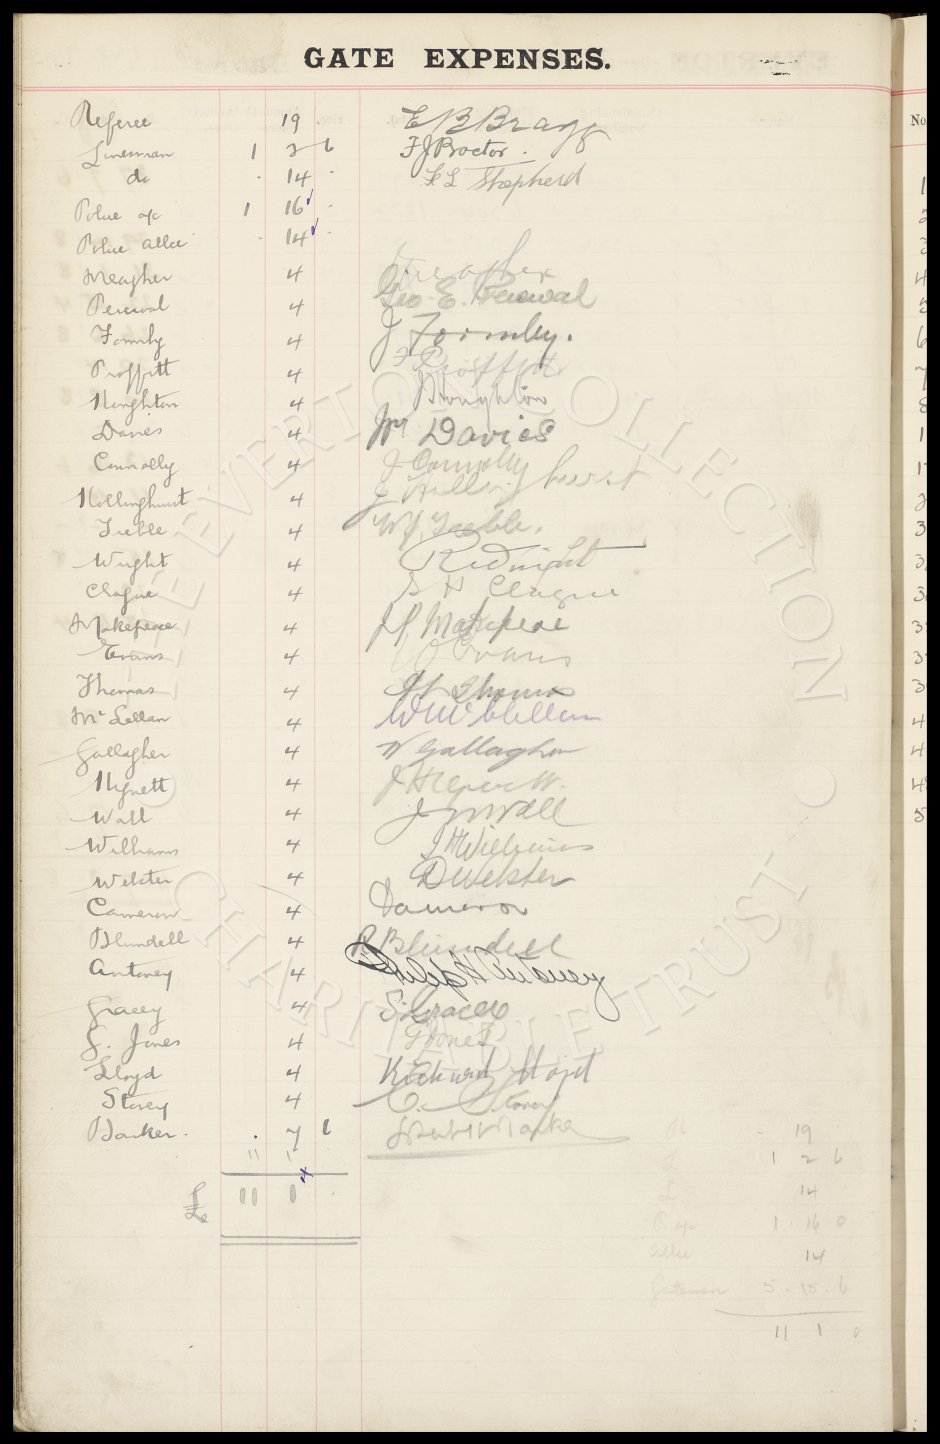 GATE EXPENSES.
Referee 19 . E B Bragg
Linesman 1 2 6 F J Proctor .
do . 14 . F L Shepherd
Police a/c 1 16 .
Police allce . 14 .
Meagher 4 Meagher
Percival 4 Geo. E. Percival
Formby 4 J Formby.
Proffitt 4 F Proffitt
Houghton 4 Houghton
Davies 4 Wm Davies
Connolly 4 J Connolly
Hollinghurst 4 J Hollinghurst
Treble 4 W J. Treble.
Wright 4 R Wright
Clague 4 G H Clague
Makepeace 4 Makepeace
Evans 4 Evans
Thomas 4 Thomas
McLellan 4 W McLellan
Gallagher 4 W Gallagher
Hignett 4 J Hignett.
Wall 4 J W Wall
Williams 4 J H Williams
Webster 4 D Webster
Cameron 4 D Cameron
Blundell 4 R Blundell
Antoney 4 Philip H Antoney
Gracey 4 S. Gracey
G. Jones 4 G Jones
Lloyd 4 Richard Lloyd
Storey 4 C. Storey
Barker . . 7 6 Barker
11 1
4
£ 11 1 .
R - 19
L 1 2 6
L 14
P. a/c 1 . 16 0
Allce 14
Gatemen 5 . 15 . 6
11 1 0
THE EVERTON COLLECTION
CHARITABLE TRUST
No